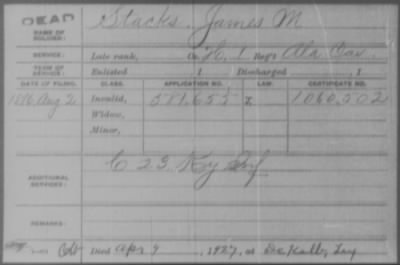 DEAD
NAME OF SOLDIER: Stacks, James M
SERVICE: Late rank, Co. H, 1 Reg't Ala Cav.
TERM OF SERVICE: Enlisted 1 Discharged , 1
DATE OF FILING. CLASS. APPLICATION NO. LAW. CERTIFICATE NO.
Aug 2 Invalid, 571,655 1060,502
Widow,
Minor,
ADDITIONAL SERVICES: C 23 Ky Inf
REMARKS:
Died Apr 9, 1927, at DeKalb,